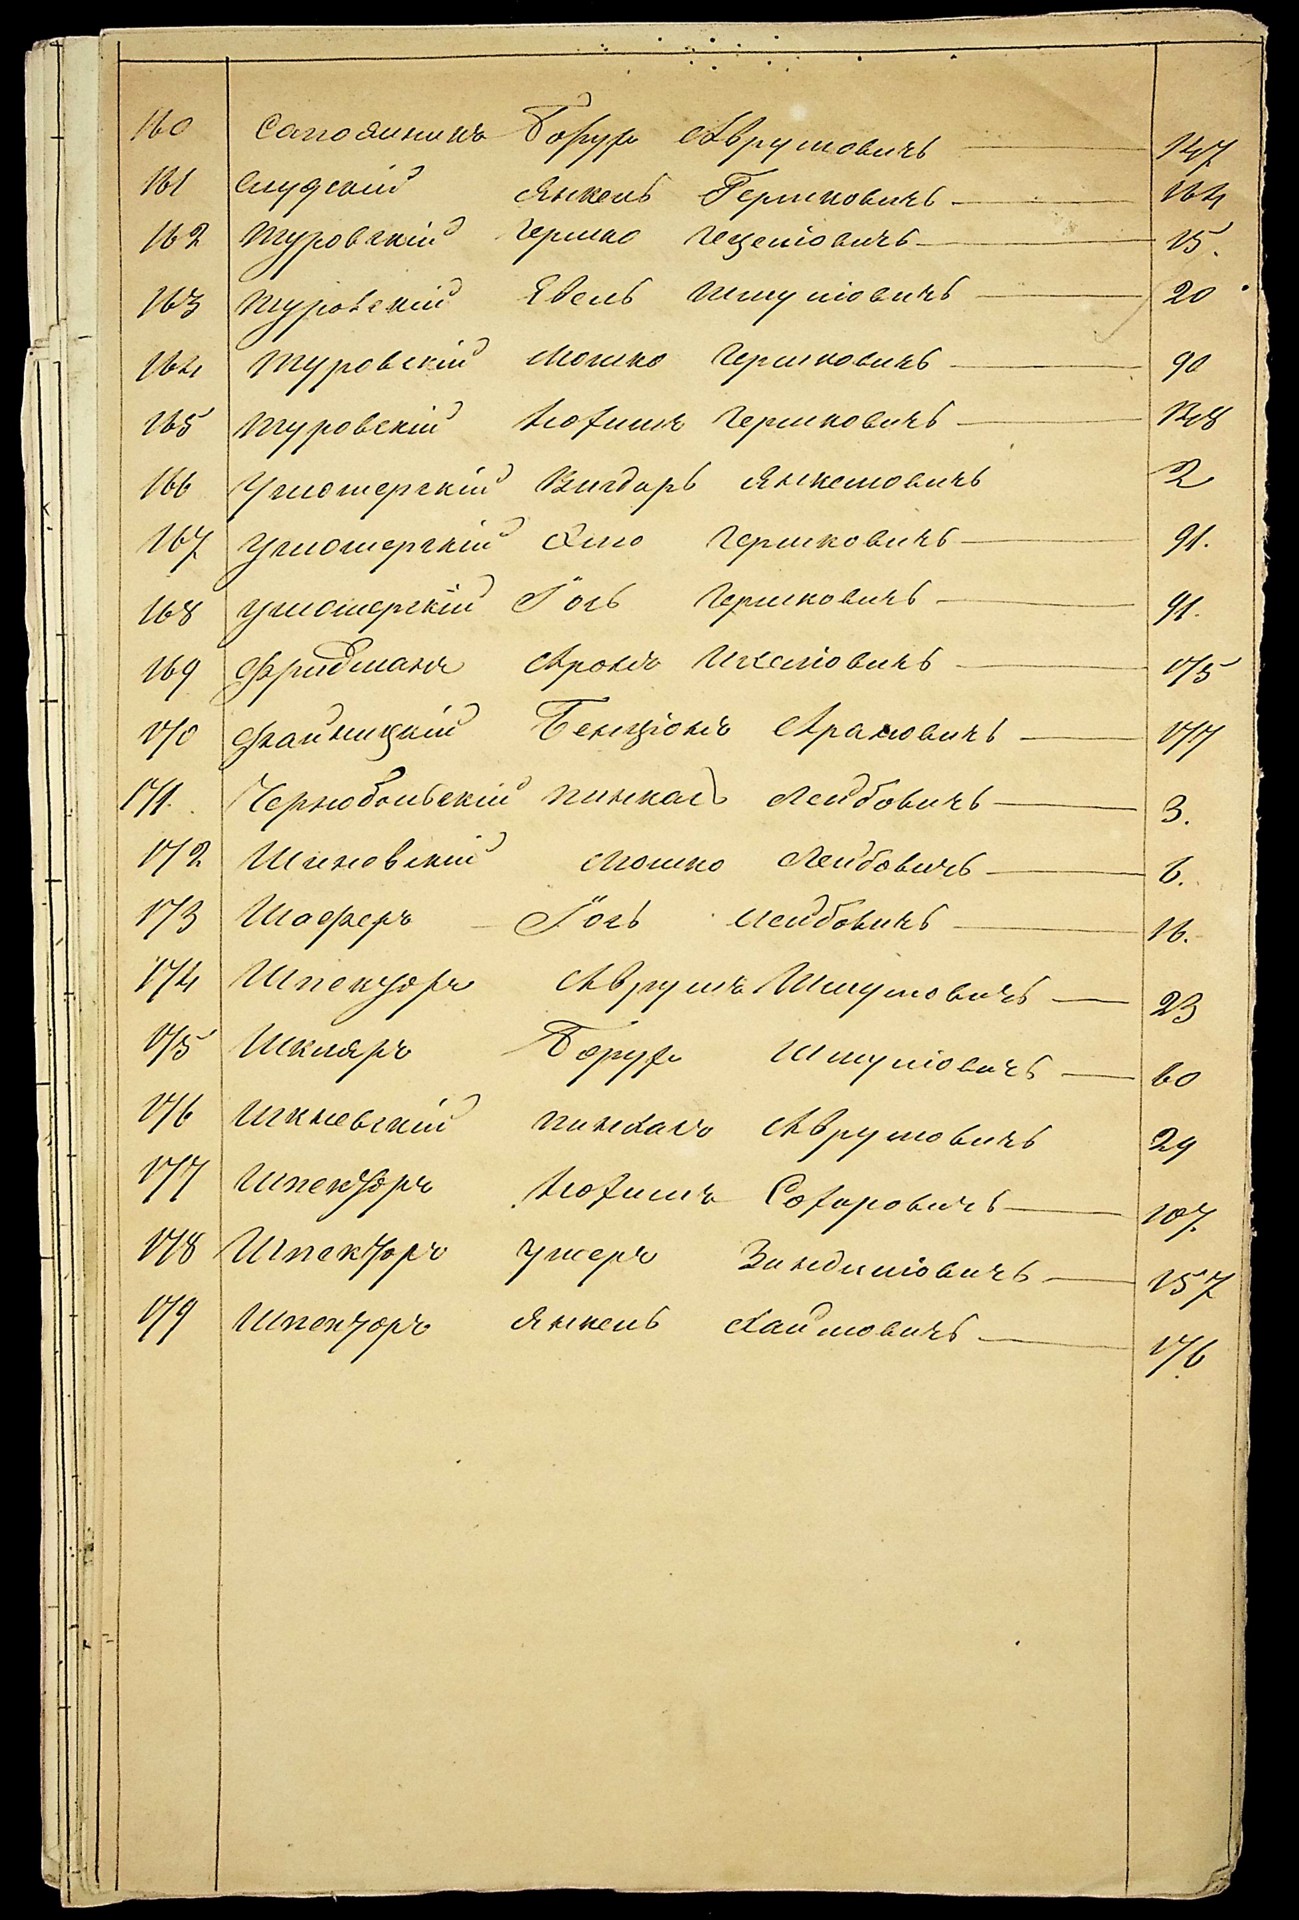 160 Сапожникъ Борухъ Аврумовичъ 147
161 Слудскій Янкель Гершковичъ 164
162 Туровскій Гершко Гецелевичъ 15.
163 Туровскій Евель Шмулёвичъ 20
164 Туровскій Мошко Гершковичъ 90
165 Туровскій Нохимъ Гершковичъ 138
166 Умошерскій Вигдоръ Янкелевичъ 2
167 Умошерскій Эльо Гершковичъ 91.
168 Умошерскій Іось Гершковичъ 91.
169 Фридманъ Аронъ Ицковичъ 175
170 Файницкій Бенціонъ Ароновичъ 177
171. Чернобыльскій Пинхасъ Лейбовичъ 3.
172 Шиновскій Мошко Лейбовичъ 6.
173 Шаферъ Іось Лейбовичъ 16.
174 Шпекторъ Аврумъ Шмулёвичъ 23
175 Шкляръ Борухъ Шмулёвичъ 60
176 Шклевскій Пинхасъ Аврумовичъ 29
177 Шпекторъ Нохимъ Сохаровичъ 107.
178 Шпекторъ Ушеръ Зинделёвичъ 157
179 Шпекторъ Янкель Хаимовичъ 176